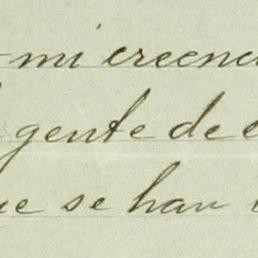 mi creenc
gente de
se han